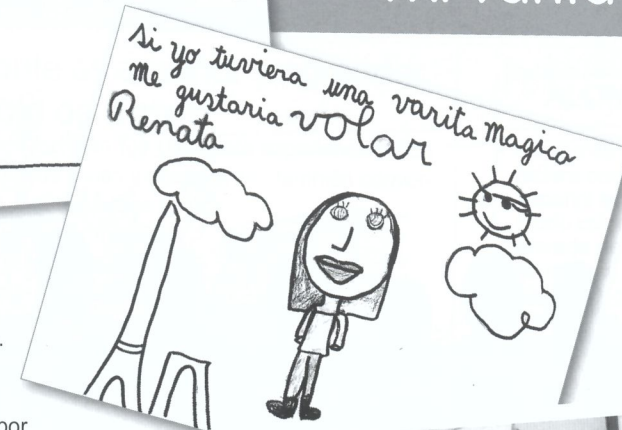 si yo tuviera una varita magica
me gustaria volar
Renata
por